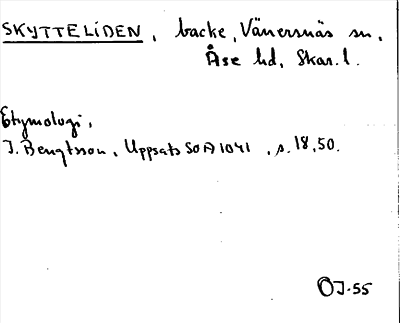 SKYTTELIDEN, backe, Vänersnäs sn,
Åse hd, Skar. l.
Etymologi,
J. Bengtsson, Uppsats SOA 1041, s. 18, 50.
ÖJ-55